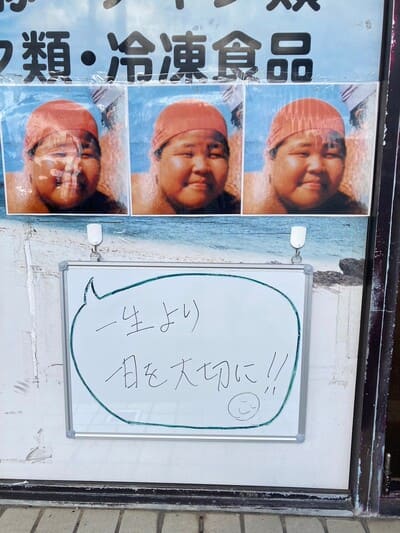 ク類・冷凍食品
一生より
一日を大切に!!